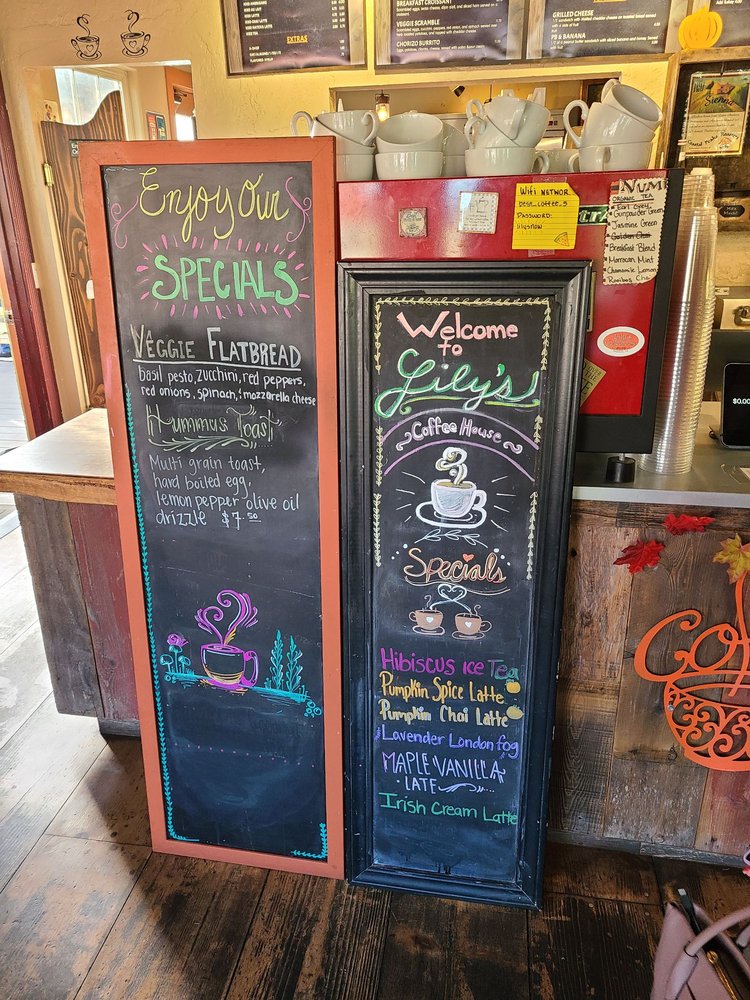 BREAKFAST CROISSANT
VEGGIE SCRAMBLE
CHORIZO BURRITO
GRILLED CHEESE
PB & BANANA
EXTRAS
Enjoy Our
SPECIALS
VEGGIE FLATBREAD
basil pesto, zucchini, red peppers,
red onions, spinach, mozzarella cheese
Hummus Toast
Multi grain toast,
hard boiled egg,
lemon pepper olive oil
drizzle $7.50
WiFi NETWOR
Password:
lilysnow
NUMI
ORGANIC TEA
Earl Grey
Gunpowder Green
Jasmine Green
Breakfast Blend
Moroccan Mint
Chamomile Lemon
Rooibos Chai
Sienna
$0.00
Welcome
to
Lily's
Coffee House
Specials
Hibiscus ice Tea
Pumpkin Spice Latte
Pumpkin Chai Latte
Lavender London fog
MAPLE VANILLA
LATE
Irish Cream Latte
Cof